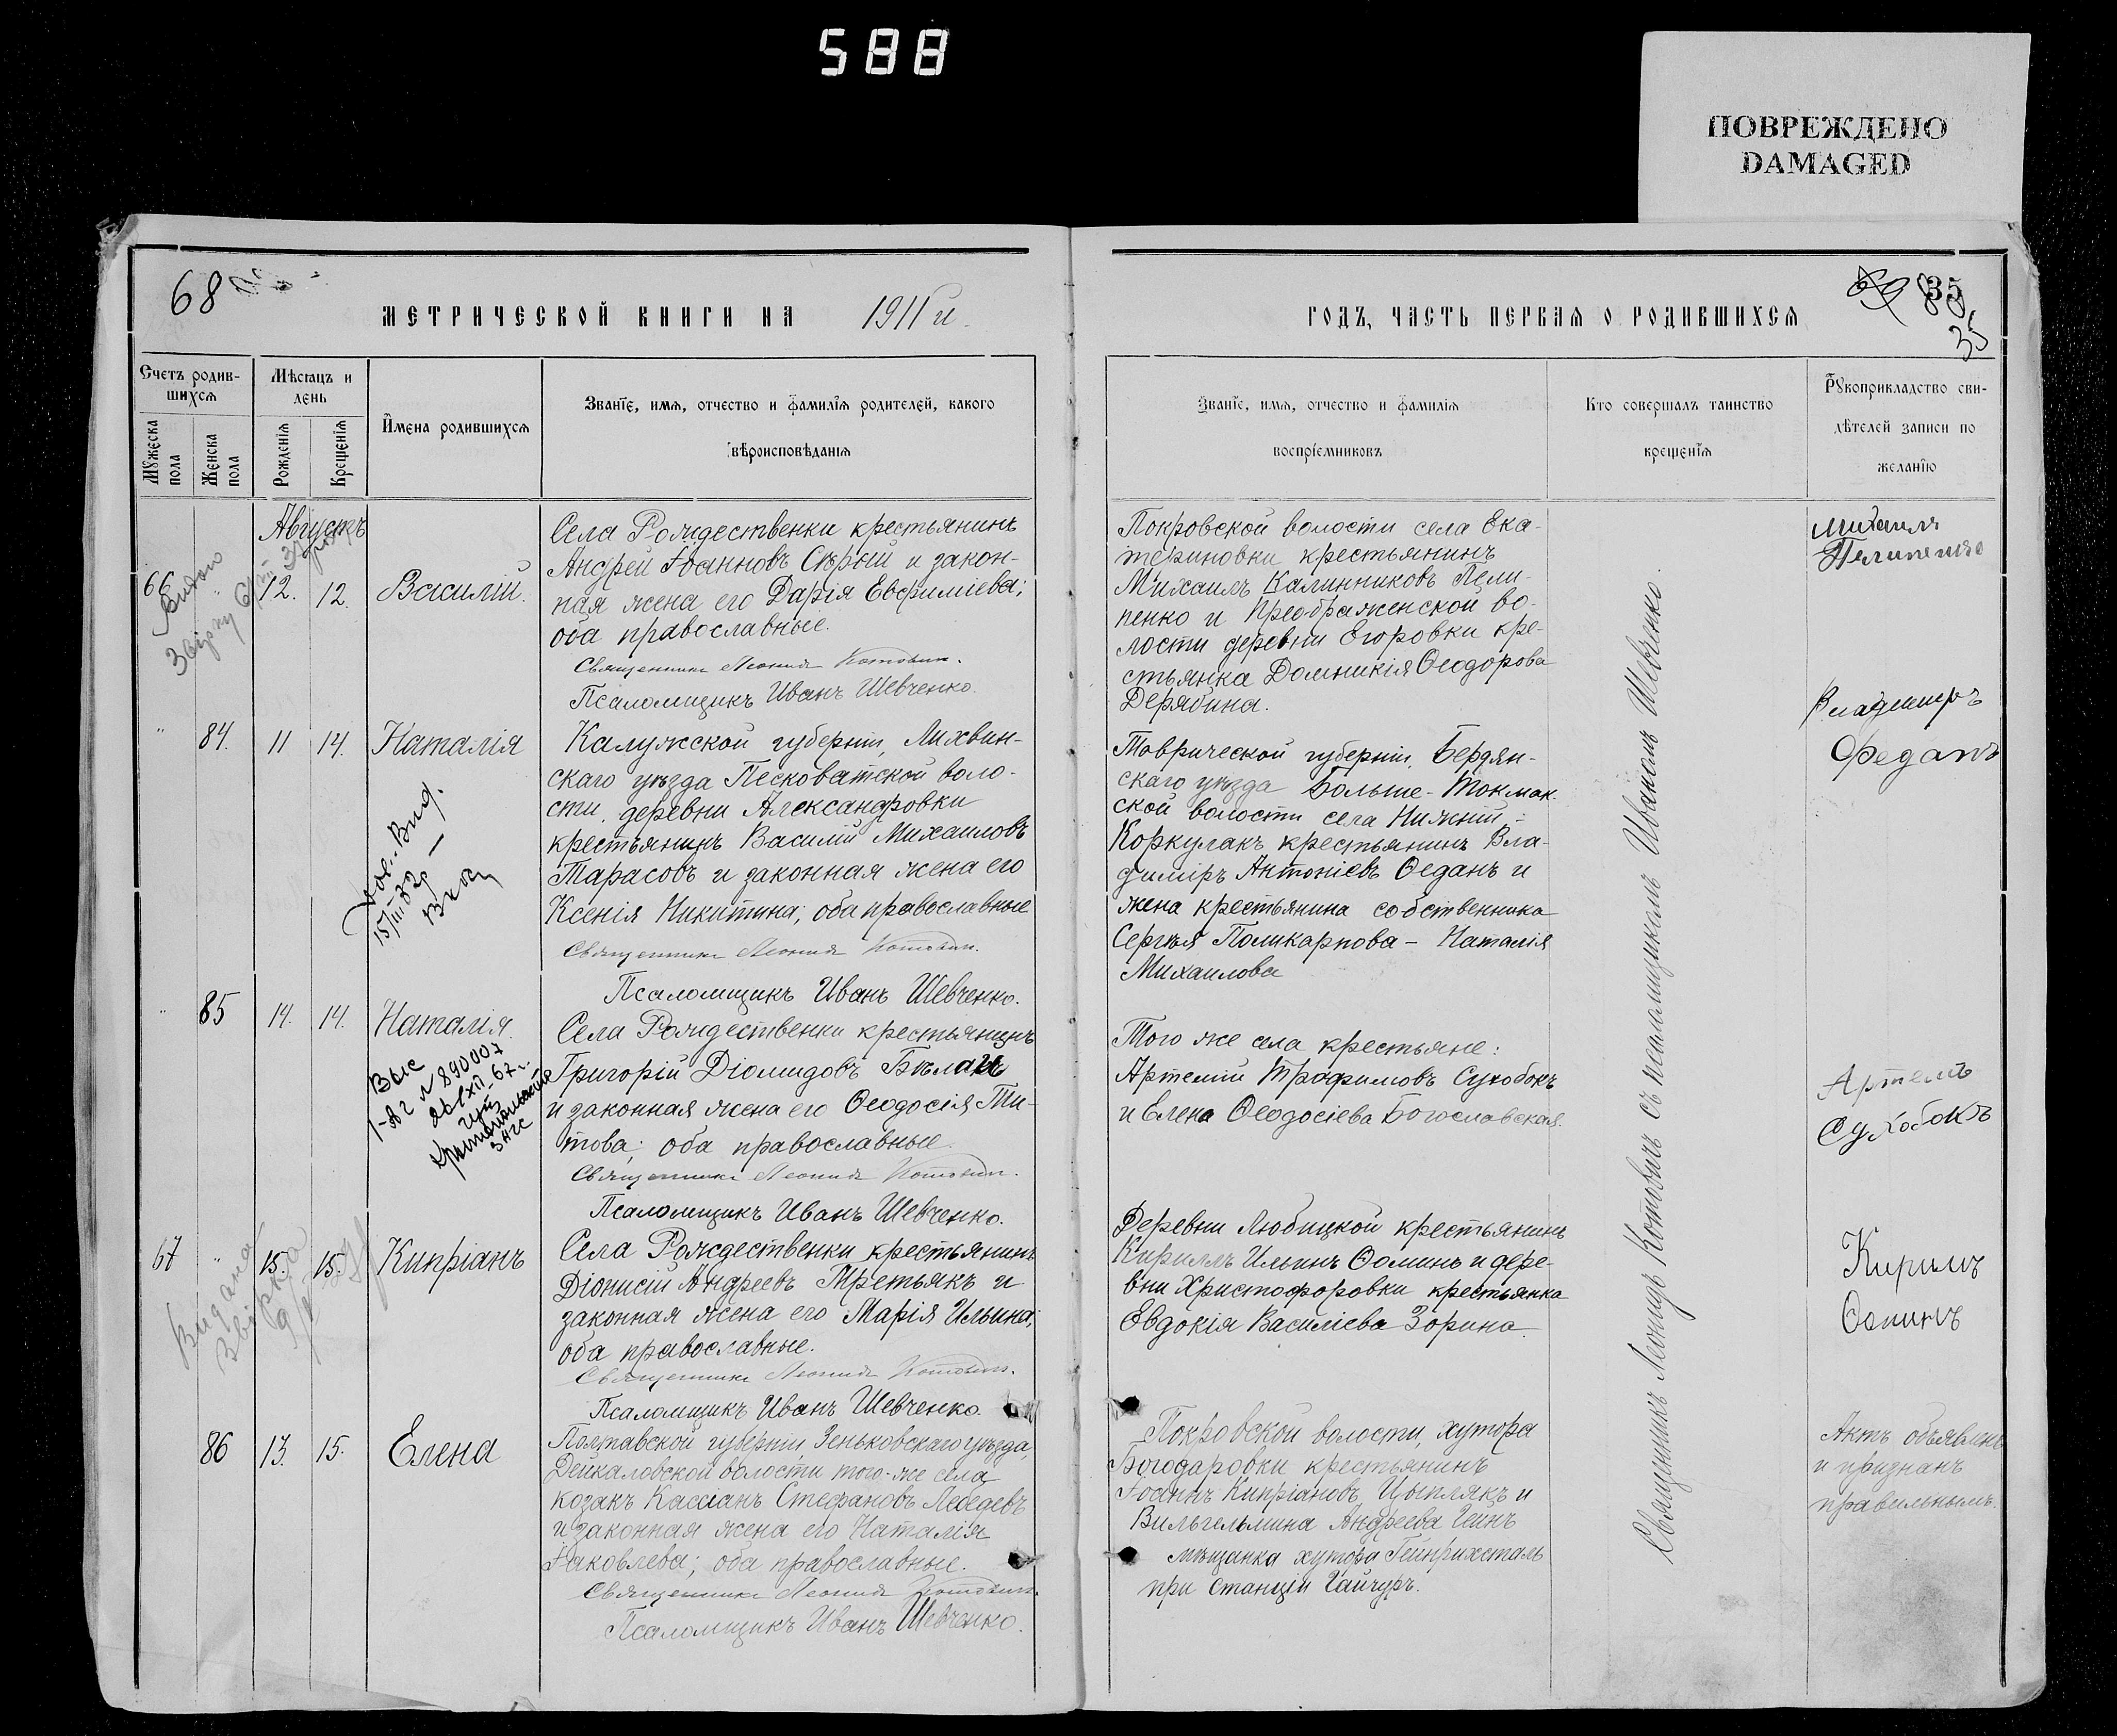 588
ПОВРЕЖДЕНО
DAMAGED
68
МЕТРИЧЕСКОЙ КНИГИ НА 1911 й
Счетъ родив-
шихся
Мѣсяцъ и
день
Имена родившихся
Званіе, имя, отчество и фамилія родителей, какого
вѣроисповѣданія
Мужеска
пола
Женска
пола
Рожденія
Крещенія
Августъ
66 " 12. 12. Василій.
Села Рождественки крестьянинъ
Андрей Іоанновъ Сѣрый и закон-
ная жена его Дарія Евфиміева;
оба православные.
Священникъ Леонидъ Котовичъ.
Псаломщикъ Иванъ Шевченко.
" 84. 11 14. Наталія
Калужской губерніи, Лихвин-
скаго уѣзда Песковатской воло-
сти, деревни Александровки
крестьянинъ Василій Михаиловъ
Тарасовъ и законная жена его
Ксенія Никитина; оба православные
Священникъ Леонидъ Котовичъ.
Псаломщикъ Иванъ Шевченко.
15/III-32р
" 85 14. 14. Наталія.
Села Рождественки крестьянинъ
Григорій Діомидовъ Бѣлай
и законная жена его Ѳеодосія Ти-
това; оба православные.
Священникъ Леонидъ Котовичъ.
Псаломщикъ Иванъ Шевченко.
Выс
1-АГ № 890007
ЗАГС
67 " 15. 15. Кипріанъ
Села Рождественки крестьянинъ
Діонисій Андреевъ Третьякъ и
законная жена его Марія Ильина;
оба православные.
Священникъ Леонидъ Котовичъ.
Псаломщикъ Иванъ Шевченко.
Видана
86 13. 15. Елена
Полтавской губерніи Зеньковскаго уѣзда,
Дейкаловской волости того-же села
козакъ Кассіанъ Стефановъ Лебедевъ
и законная жена его Наталія
Іаковлева; оба православные.
Священникъ Леонидъ Котовичъ.
Псаломщикъ Иванъ Шевченко.
69 35
35
ГОДЪ, ЧАСТЬ ПЕРВАЯ О РОДИВШИХСЯ
Званіе, имя, отчество и фамилія
воспріемниковъ
Кто совершалъ таинство
крещенія
Рукоприкладство сви-
дѣтелей записи по
желанію
Покровской волости села Ека-
териновки крестьянинъ
Михаилъ Калинниковъ Пели-
пенко и Преображенской во-
лости деревни Егоровки кре-
стьянка Домникія Ѳеодорова
Дерябина.
Михаилъ
Пелипенко
Таврической губерніи, Бердян-
скаго уѣзда Больше-Токмак-
ской волости села Нижній-
Коркулакъ крестьянинъ Вла-
диміръ Антоніевъ Ѳеданъ и
жена крестьянина собственника
Сергѣя Поликарпова - Наталія
Михаилова
Владимиръ
Феданъ
Того же села крестьяне:
Артемій Трофимовъ Сухобокъ
и Елена Ѳеодосіева Богославская.
Артемъ
Сухобокъ
Деревни Любицкой крестьянинъ
Кириллъ Ильинъ Ѳоминъ и дере-
вни Христофоровки крестьянка
Евдокія Василіева Зорина.
Кирилъ
Ѳоминъ
Покровской волости, хутора
Богодаровки крестьянинъ
Іоаннъ Кипріановъ Цыплякъ и
Вильгельмина Андреева Гейнъ
мѣщанка хутора Гейнрихсталь
при станціи Гайчуръ.
Актъ объявленъ
и признанъ
правильнымъ.
Священникъ Леонидъ Котовичъ съ псаломщикомъ Иваномъ Шевченко.